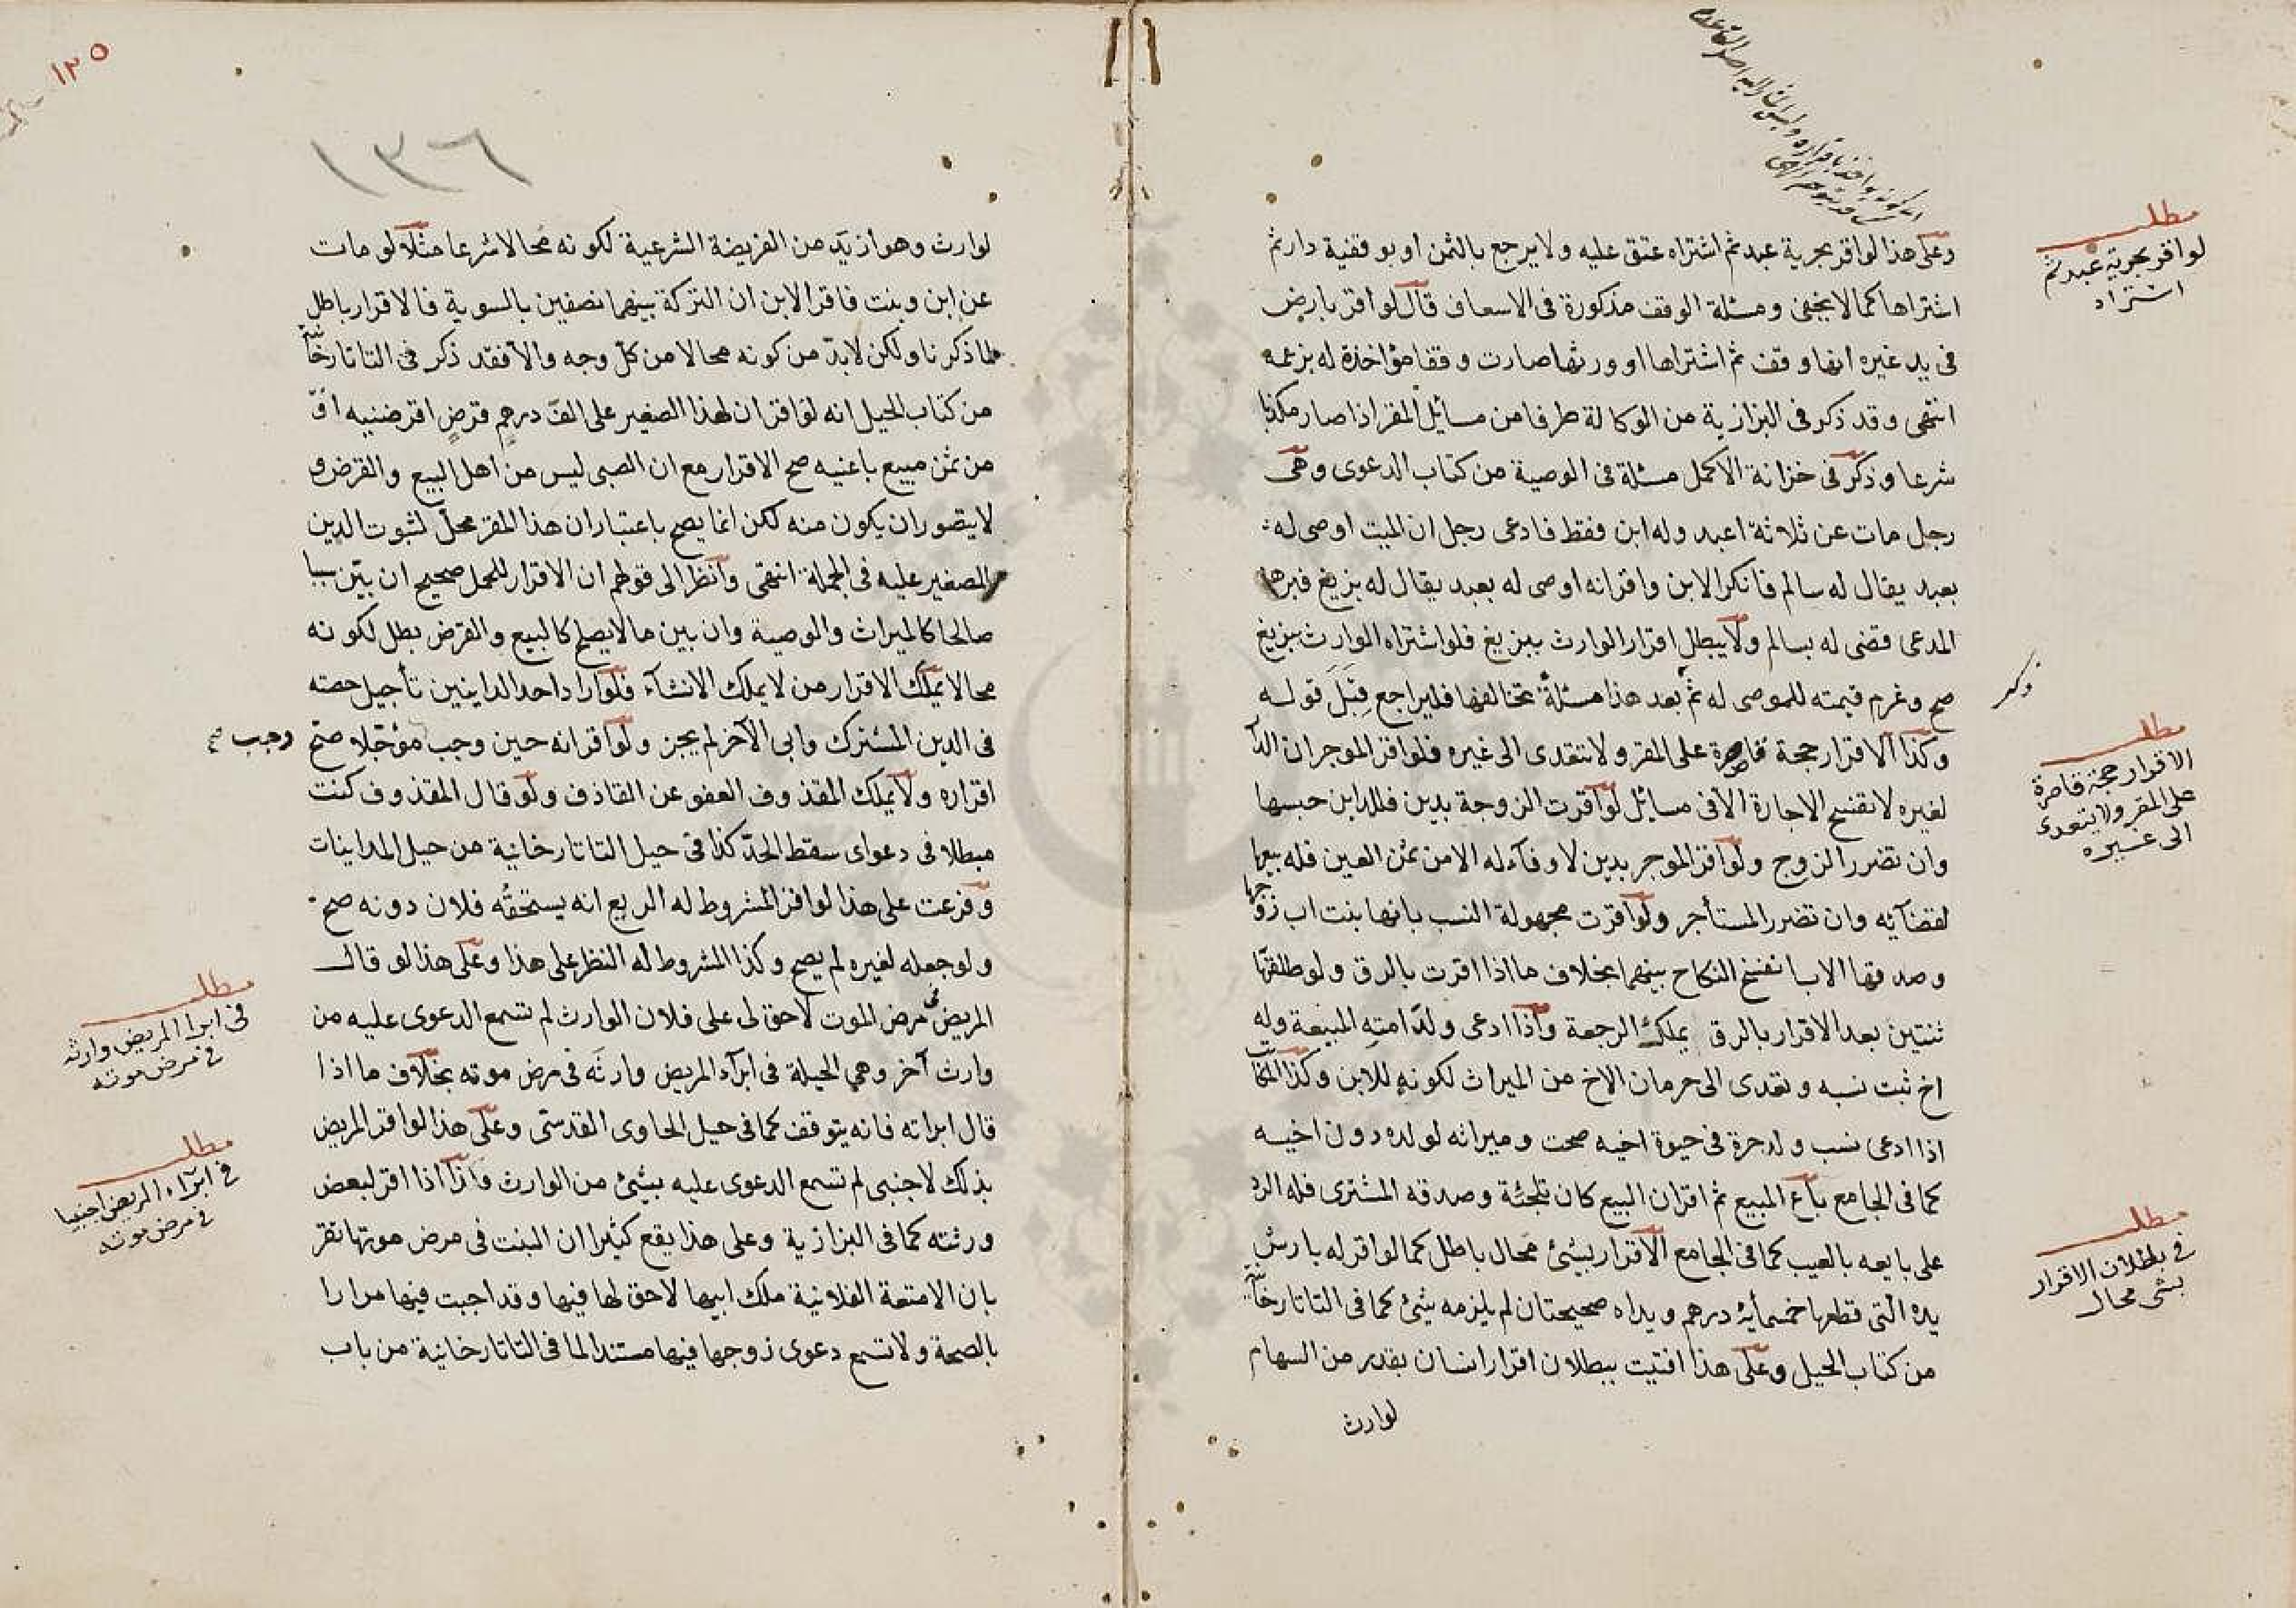 وعلى هذا لو اقر بحرية عبد ثم اشتراه عتق عليه ولا يرجع بالثمن او بوقفية دار ثم
اشتراها كما لا يخفى ومسئلة الوقف مذكورة فى الاسعاف قال لو اقر بارض
فى يد غيره انها وقف ثم اشتراها او ورثها صارت وقفا مؤاخذة له بزعمه
انتهى وقد ذكر فى البزازية من الوكالة طرفا من مسائل المقر اذا صار مكذبا
شرعا وذكر فى خزانة الاكمل مسئلة فى الوصية من كتاب الدعوى وهى
رجل مات عن ثلاثة اعبد وله ابن فقط فادعى رجل ان الميت اوصى له
بعبد يقال له سالم فانكر الابن واقر انه اوصى له بعبد يقال له بزيغ فبرها
المدعى قضى له بسالم ولا يبطل اقرار الوارث ببزيغ فلو اشتراه الوارث ببزيغ
صح وغرم قيمته للموصى له ثم بعد هذا مسئلة تخالفها فليراجع قبل قوله
وكذا الاقرار حجة قاصرة على المقر ولا تتعدى الى غيره فلو اقر الموجر ان الدا
لغيره لا تفسخ الاجارة الا فى مسائل لو اقرت الزوجة بدين فللداين حبسها
وان تضرر الزوج ولو اقر الموجر بدين لا وفآء له الا من ثمن العين فله بيعها
لقضآئه وان تضرر المستأجر ولو اقرت مجهولة النسب بانها بنت اب زوجها
وصدقها الاب انفسخ النكاح بينهما بخلاف ما اذا اقرت بالرق ولو طلقها
ثنتين بعد الاقرار بالرق يملك الرجعة واذا ادعى ولد امته المبيعة وله
اخ ثبت نسبه وتعدى الى حرمان الاخ من الميراث لكونه للابن وكذا المكاتب
اذا ادعى نسب ولد حرة فى حيوة اخيه صحت وميراثه لولده دون اخيه
كما فى الجامع باع المبيع ثم اقر ان البيع كان تلجئة وصدقه المشترى فله الرد
على بايعه بالعيب كما فى الجامع الاقرار بشئ محال باطل كما لو اقر له بارش
يده التى قطعها خمسمأية درهم ويداه صحيحتان لم يلزمه شئ كما فى التاتارخانية
من كتاب الحيل وعلى هذا افتيت ببطلان اقرار انسان بقدر من السهام
لوارث
مطلب
لو اقر بحرية عبد ثم
اشتراه
مطلب
الاقرار حجة قاصرة
على المقر ولا يتعدى
الى غيره
مطلب
فى بطلان الاقرار
بشى محال
١٣٥
١٣٦
لوارث وهو ازيد من الفريضة الشرعية لكونه محالا شرعا مثلا لو مات
عن ابن وبنت فاقر الابن ان التركة بينهما نصفين بالسوية فالاقرار باطل
لما ذكرنا ولكن لا بد من كونه محالا من كل وجه والا فقد ذكر فى التاتارخانية
من كتاب الحيل انه لو اقر ان لهذا الصغير على الف درهم قرض اقرضنيه او
من ثمن مبيع باعنيه صح الاقرار مع ان الصبى ليس من اهل البيع والقرض و
لا يتصور ان يكون منه لكن انما يصح باعتبار ان هذا المقر محل لثبوت الدين
للصغير عليه فى الجملة انتهى وانظر الى قولهم ان الاقرار للحمل صحيح ان بيّن سببا
صالحا كالميراث والوصية وان بين ما لا يصلح كالبيع والقرض بطل لكونه
محالا يملك الاقرار من لا يملك الانشآء فلو اراد احد الداينين تأجيل حصته
فى الدين المشترك وابى الآخر لم يجز ولو اقر انه حين وجب مؤجلا صح
وجب صح
اقراره ولا يملك المقذوف العفو عن القاذف ولو قال المقذوف كنت
مبطلا فى دعواى سقط الحد كذا فى حيل التاتارخانية من حيل المداينات
وفرعت على هذا لو اقر المشروط له الريع انه يستحقه فلان دونه صح
ولو جعله لغيره لم يصح وكذا المشروط له النظر على هذا وعلى هذا لو قال
المريض فى مرض الموت لا حق لى على فلان الوارث لم تسمع الدعوى عليه من
وارث آخر وهى الحيلة فى ابرآء المريض وارثه فى مرض موته بخلاف ما اذا
قال ابراته فانه يتوقف كما فى حيل الحاوى القدسى وعلى هذا لو اقر المريض
بذلك لاجنبى لم تسمع الدعوى عليه بشئ من الوارث فاذا اقر لبعض
ورثته كما فى البزازية وعلى هذا يقع كثيرا ان البنت فى مرض موتها تقر
بان الامتعة الفلانية ملك ابيها لا حق لها فيها وقد اجبت فيها مرارا
بالصحة ولا تسمع دعوى زوجها فيها مستندا لما فى التاتارخانية من باب
مطلب
فى ابرا المريض وارثه
فى مرض موته
مطلب
فى ابرآء المريض اجنبيا
فى مرض موته